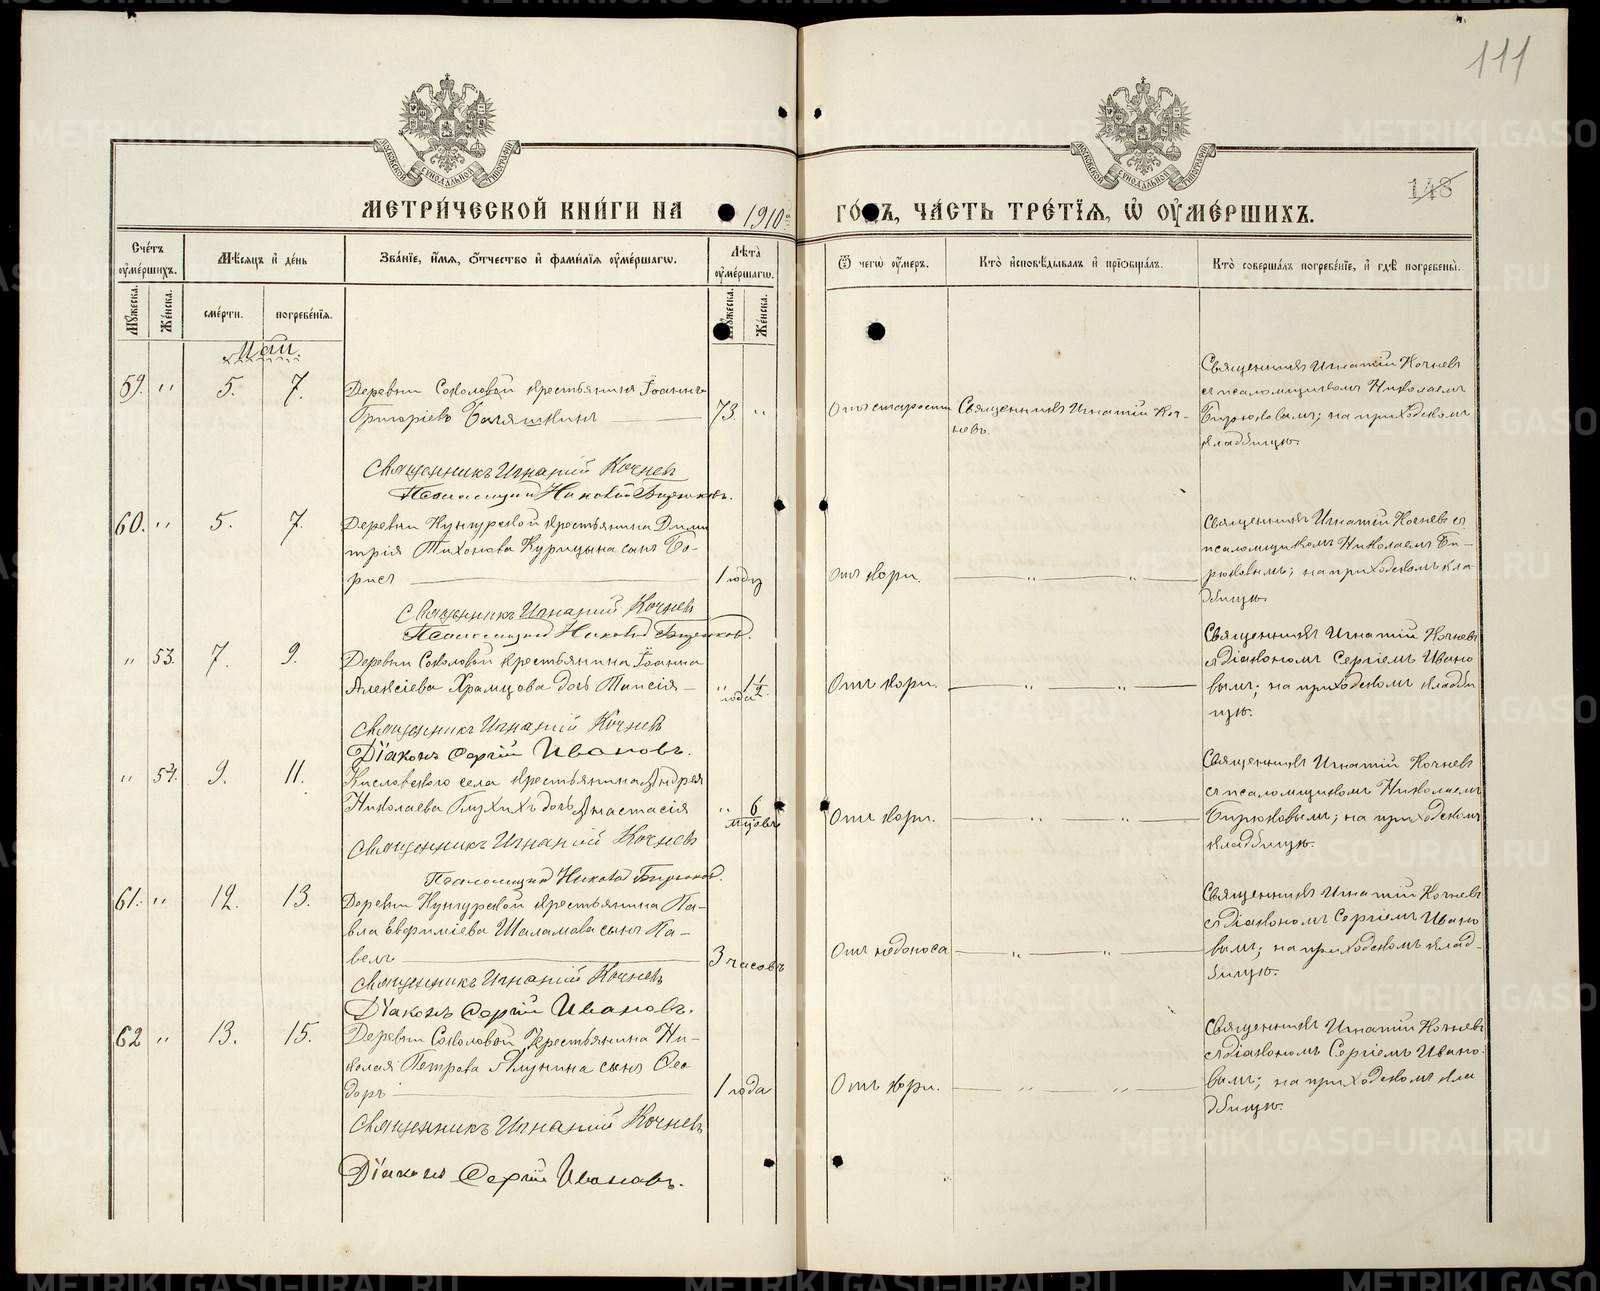 111
148
МЕТРИ́ЧЕСКОЙ КНИ́ГИ НА 1910й
ГО́ДЪ, ЧА́СТЬ ТРЕ́ТЇѦ, Ѡ҆ ОУ҆МЕ́РШИХЪ.
Сче́тъ оу҆ме́ршихъ.
Мѣ́сяцъ и҆ де́нь
Зва́нїе, и҆́мѧ, ѻ҆́тчество и҆ фами́лїѧ оу҆ме́ршагѡ.
Лѣ́та оу҆ме́ршагѡ.
Ѿ чегѡ̀ оу҆́меръ.
Кто̀ и҆сповѣ́дывалъ и҆ прїѡбща́лъ.
Кто̀ соверша́лъ погребе́нїе, и҆ гдѣ̀ погребены̀.
Му́жеска.
Же́нска.
сме́рти.
погребе́нїѧ.
Му́жеска.
Же́нска.
Май.
59. " 5. 7.
Деревни Соколовой крестьянинъ Іоаннъ
Григоріевъ Баляшкинъ
73. "
Отъ старости
Священникъ Игнатій Коч-
невъ.
Священникъ Игнатій Кочневъ
съ псаломщикомъ Николаемъ
Бирюковымъ; на приходскомъ
кладбищѣ.
Священникъ Игнатій Кочневъ
Псаломщикъ Николай Бирюковъ.
60. " 5. 7.
Деревни Кунгурской крестьянина Дими
трія Тихонова Курицына сынъ Бо-
рисъ
1 году
Отъ кори.
" "
Священникъ Игнатій Кочневъ съ
псаломщикомъ Николаемъ Би-
рюковымъ; на приходскомъ кла
дбищѣ.
Священникъ Игнатій Кочневъ
Псаломщикъ Николай Бирюковъ.
" 53. 7. 9.
Деревни Соколовой крестьянина Іоанна
Алексіева Храмцова дочь Таисія
" 1 1/2 года
Отъ кори.
" "
Священникъ Игнатій Кочневъ
съ діакономъ Сергіемъ Ивано
вымъ; на приходскомъ кладби
щѣ.
Священникъ Игнатій Кочневъ
Діаконъ Сергій Ивановъ.
" 54. 9. 11.
Кисловского села крестьянина Андрея
Николаева Глухихъ дочь Анастасія
" 6 мцовъ
Отъ кори.
" "
Священникъ Игнатій Кочневъ
съ псаломщикомъ Николаемъ
Бирюковымъ; на приходскомъ
кладбищѣ.
Священникъ Игнатій Кочневъ
Псаломщикъ Николай Бирюковъ.
61. " 12. 13.
Деревни Кунгурской крестьянина Па-
вла Евфиміева Шаламова сынъ Па-
велъ
3 часовъ
Отъ недоноса
" "
Священникъ Игнатій Кочневъ
съ діакономъ Сергіемъ Ивано
вымъ; на приходскомъ клад-
бищѣ.
Священникъ Игнатій Кочневъ
Діаконъ Сергій Ивановъ.
62 " 13. 15.
Деревни Соколовой крестьянина Ни-
колая Петрова Ялунина сынъ Ѳео
доръ
1 года
Отъ кори.
" "
Священникъ Игнатій Кочневъ
съ діакономъ Сергіемъ Ивано-
вымъ; на приходскомъ кла
дбищѣ.
Священникъ Игнатій Кочневъ
Діаконъ Сергій Ивановъ.
METRIKI.GASO-URAL.RU